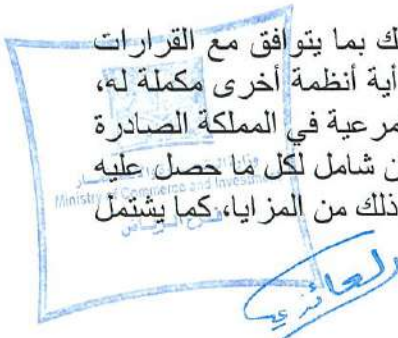 ك بما يتوافق مع القرارات
أية أنظمة أخرى مكملة له،
مرعية في المملكة الصادرة
ن شامل لكل ما حصل عليه
ذلك من المزايا، كما يشتمل
Ministry of Commerce and Investment